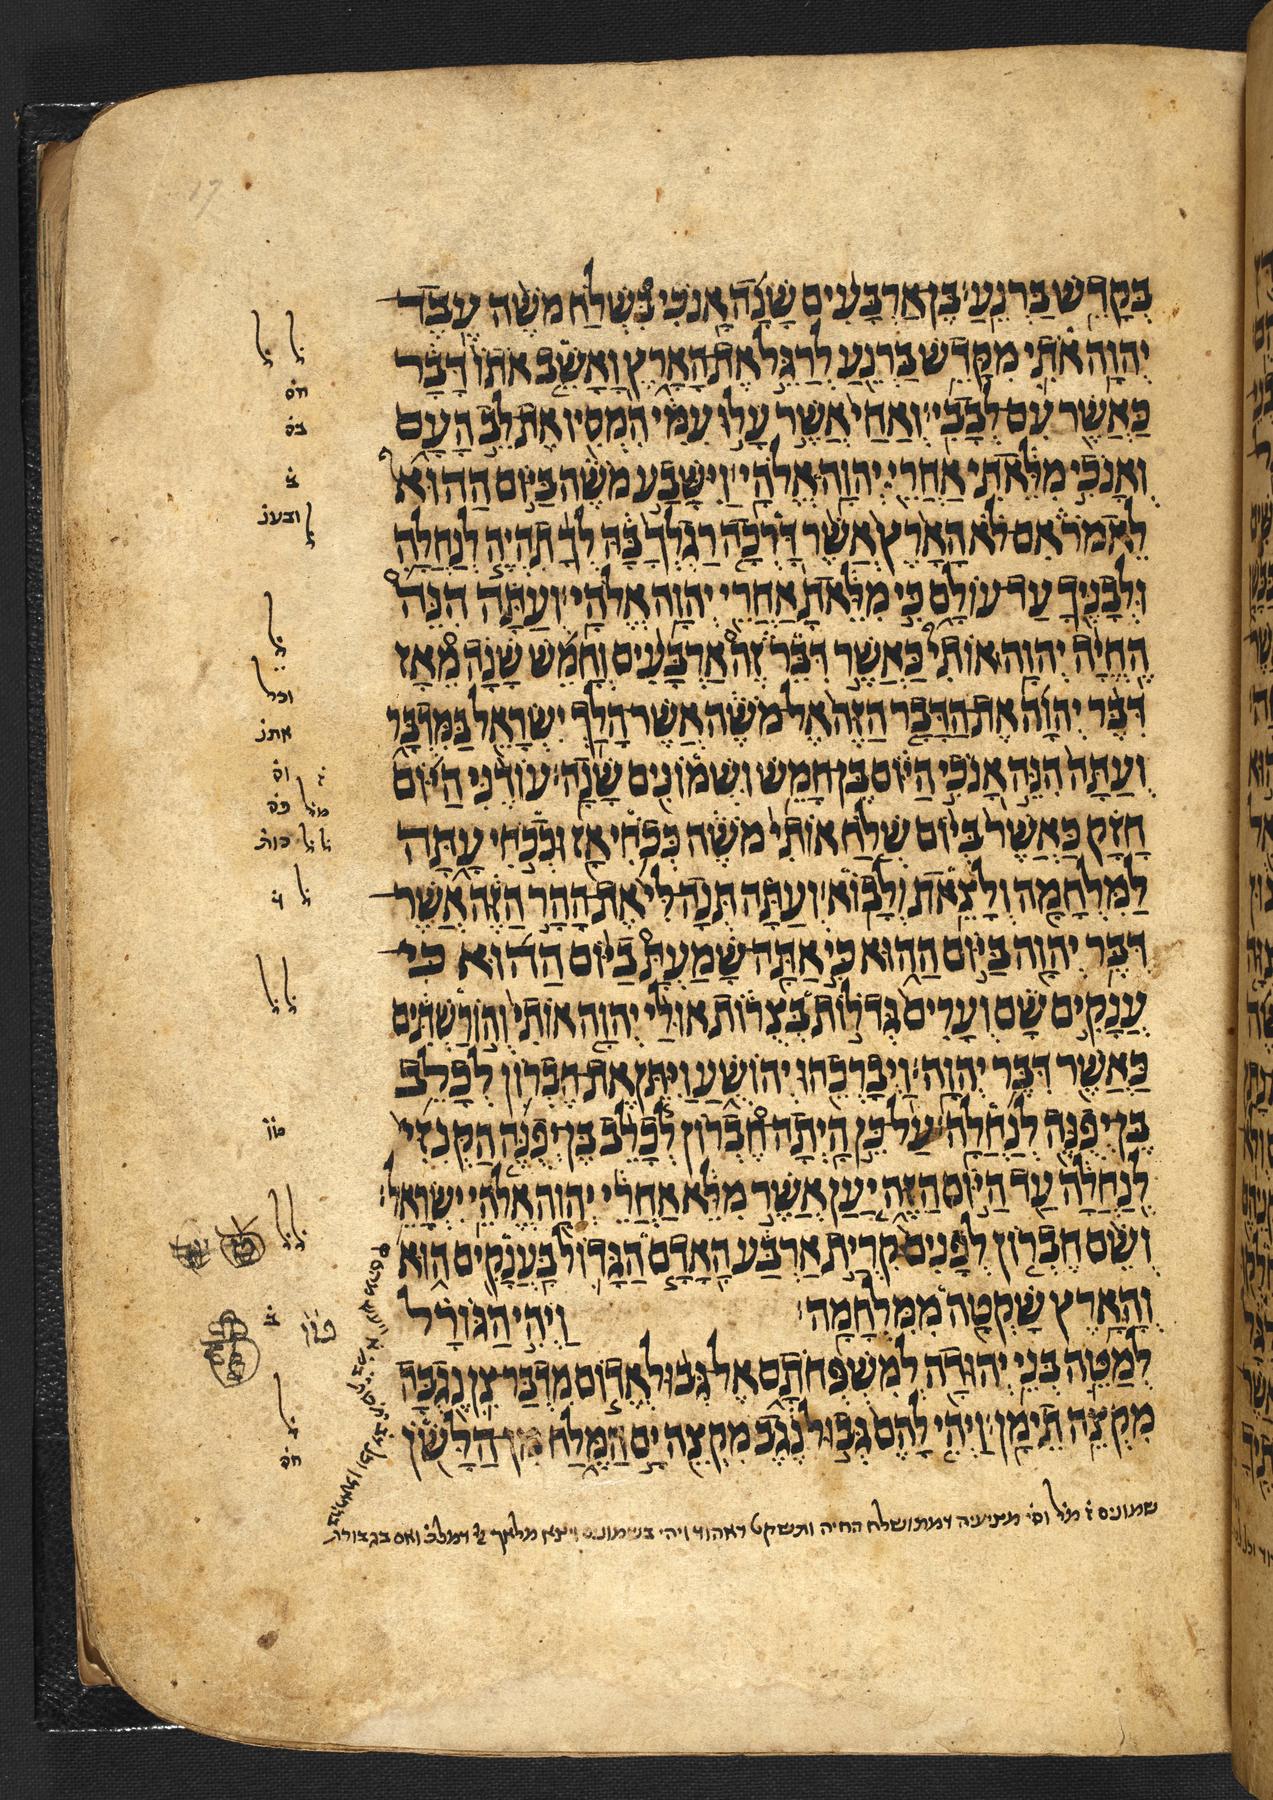 בְּקָדֵשׁ בַּרְנֵעַ׃ בֶּן אַרְבָּעִים שָׁנָה אָנֹכִי בִּשְׁלֹחַ מֹשֶׁה עֶבֶד
יְהוָה אֹתִי מִקָּדֵשׁ בַּרְנֵעַ לְרַגֵּל אֶת הָאָרֶץ וָאָשֵׁב אֹתוֹ דָּבָר
כַּאֲשֶׁר עִם לְבָבִי׃ וְאַחַי אֲשֶׁר עָלוּ עִמִּי הִמְסִיו אֶת לֵב הָעָם
וְאָנֹכִי מִלֵּאתִי אַחֲרֵי יְהוָה אֱלֹהָי׃ וַיִּשָּׁבַע מֹשֶׁה בַּיּוֹם הַהוּא
לֵאמֹר אִם לֹא הָאָרֶץ אֲשֶׁר דָּרְכָה רַגְלְךָ בָּהּ לְךָ תִהְיֶה לְנַחֲלָה
וּלְבָנֶיךָ עַד עוֹלָם כִּי מִלֵּאתָ אַחֲרֵי יְהוָה אֱלֹהָי׃ וְעַתָּה הִנֵּה
הֶחֱיָה יְהוָה אוֹתִי כַּאֲשֶׁר דִּבֵּר זֶה אַרְבָּעִים וְחָמֵשׁ שָׁנָה מֵאָז
דִּבֶּר יְהוָה אֶת הַדָּבָר הַזֶּה אֶל מֹשֶׁה אֲשֶׁר הָלַךְ יִשְׂרָאֵל בַּמִּדְבָּר
וְעַתָּה הִנֵּה אָנֹכִי הַיּוֹם בֶּן חָמֵשׁ וּשְׁמוֹנִים שָׁנָה׃ עוֹדֶנִּי הַיּוֹם
חָזָק כַּאֲשֶׁר בְּיוֹם שְׁלֹחַ אוֹתִי מֹשֶׁה כְּכֹחִי אָז וּכְכֹחִי עָתָּה
לַמִּלְחָמָה וְלָצֵאת וְלָבוֹא׃ וְעַתָּה תְּנָה לִּי אֶת הָהָר הַזֶּה אֲשֶׁר
דִּבֶּר יְהוָה בַּיּוֹם הַהוּא כִּי אַתָּה שָׁמַעְתָּ בַיּוֹם הַהוּא כִּי
עֲנָקִים שָׁם וְעָרִים גְּדֹלוֹת בְּצֻרוֹת אוּלַי יְהוָה אוֹתִי וְהוֹרַשְׁתִּים
כַּאֲשֶׁר דִּבֶּר יְהוָה׃ וַיְבָרְכֵהוּ יְהוֹשֻׁעַ וַיִּתֵּן אֶת חֶבְרוֹן לְכָלֵב
בֶּן יְפֻנֶּה לְנַחֲלָה׃ עַל כֵּן הָיְתָה חֶבְרוֹן לְכָלֵב בֶּן יְפֻנֶּה הַקְּנִזִּי
לְנַחֲלָה עַד הַיּוֹם הַזֶּה יַעַן אֲשֶׁר מִלֵּא אַחֲרֵי יְהוָה אֱלֹהֵי יִשְׂרָאֵל׃
וְשֵׁם חֶבְרוֹן לְפָנִים קִרְיַת אַרְבַּע הָאָדָם הַגָּדוֹל בָּעֲנָקִים הוּא
וְהָאָרֶץ שָׁקְטָה מִמִּלְחָמָה׃ וַיְהִי הַגּוֹרָל
לְמַטֵּה בְּנֵי יְהוּדָה לְמִשְׁפְּחֹתָם אֶל גְּבוּל אֱדוֹם מִדְבַּר צִן נֶגְבָּה
מִקְצֵה תֵימָן׃ וַיְהִי לָהֶם גְּבוּל נֶגֶב מִקְצֵה יָם הַמֶּלַח מִן הַלָּשֹׁן
שמונים ז מל וס מתושלח החיה ותשקט דאהוד ויהי בשמונים ויצא מלאך ואם בגבורת
ל ל
חס
בס
ב
ובענ
ל
וכל
אתנ
וס
מל כס
ל ל כות
ל ד
ל ל
טו
ל ל
ב
ל
חס
17